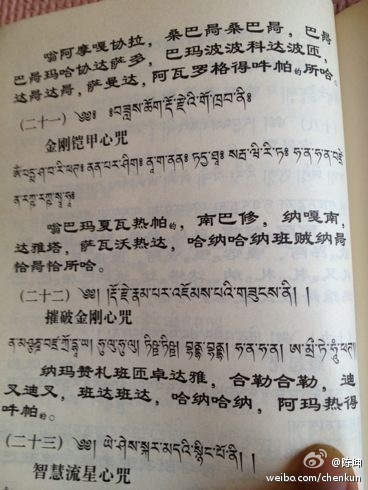 嗡阿摩嘎协拉，桑巴曷桑巴曷，巴曷
巴曷玛哈协达萨多，巴玛波波科达波匝，
达曷达曷，萨曼达，阿瓦罗格得吽帕的所哈。
(二十一) ༄༅། །བཟླས་ཆོག་རྡོ་རྗེའི་གོ་ཁྲབ་ནི།
金刚铠甲心咒
嗡巴玛夏瓦热帕的，南巴修，纳嘎南，
达雅塔，萨瓦沃热达，哈纳哈纳班贼纳曷
恰曷恰所哈。
(二十二) ༄༅། །རྡོ་རྗེ་རྣམ་པར་འཇོམས་པའི་གཟུངས་ནི། །
摧破金刚心咒
纳玛赞札班匝卓达雅，合勒合勒，迪
叉迪叉，班达班达，哈纳哈纳，阿玛热得
吽帕的。
(二十三) ༄༅། །ཡེ་ཤེས་སྐར་མདའི་སྙིང་པོ་ནི། །
智慧流星心咒
@陈坤
weibo.com/chenkun